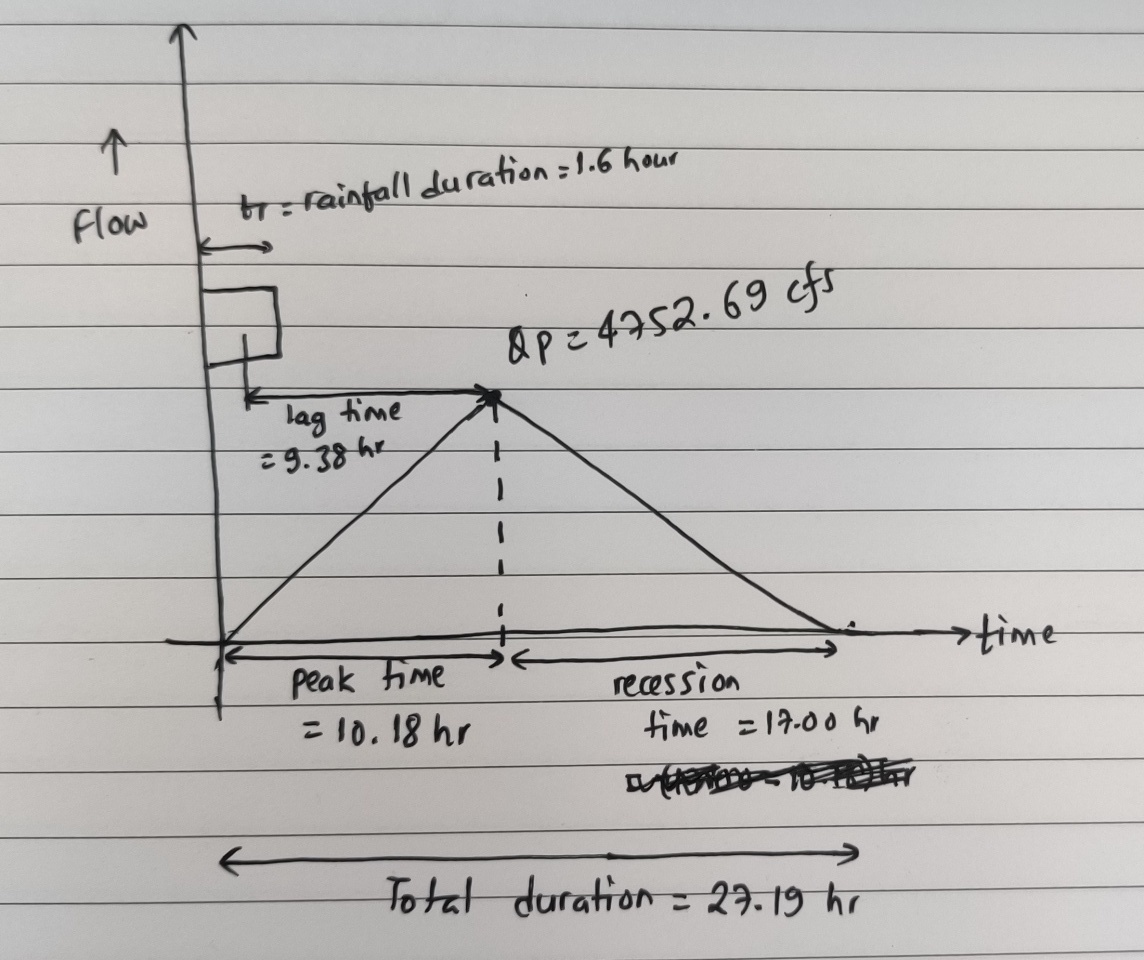 tr = rainfall duration = 1.6 hour
flow
Qp = 4752.69 cfs
lag time
= 9.38 hr
time
peak time
= 10.18 hr
recession
time = 17.00 hr
Total duration = 27.19 hr